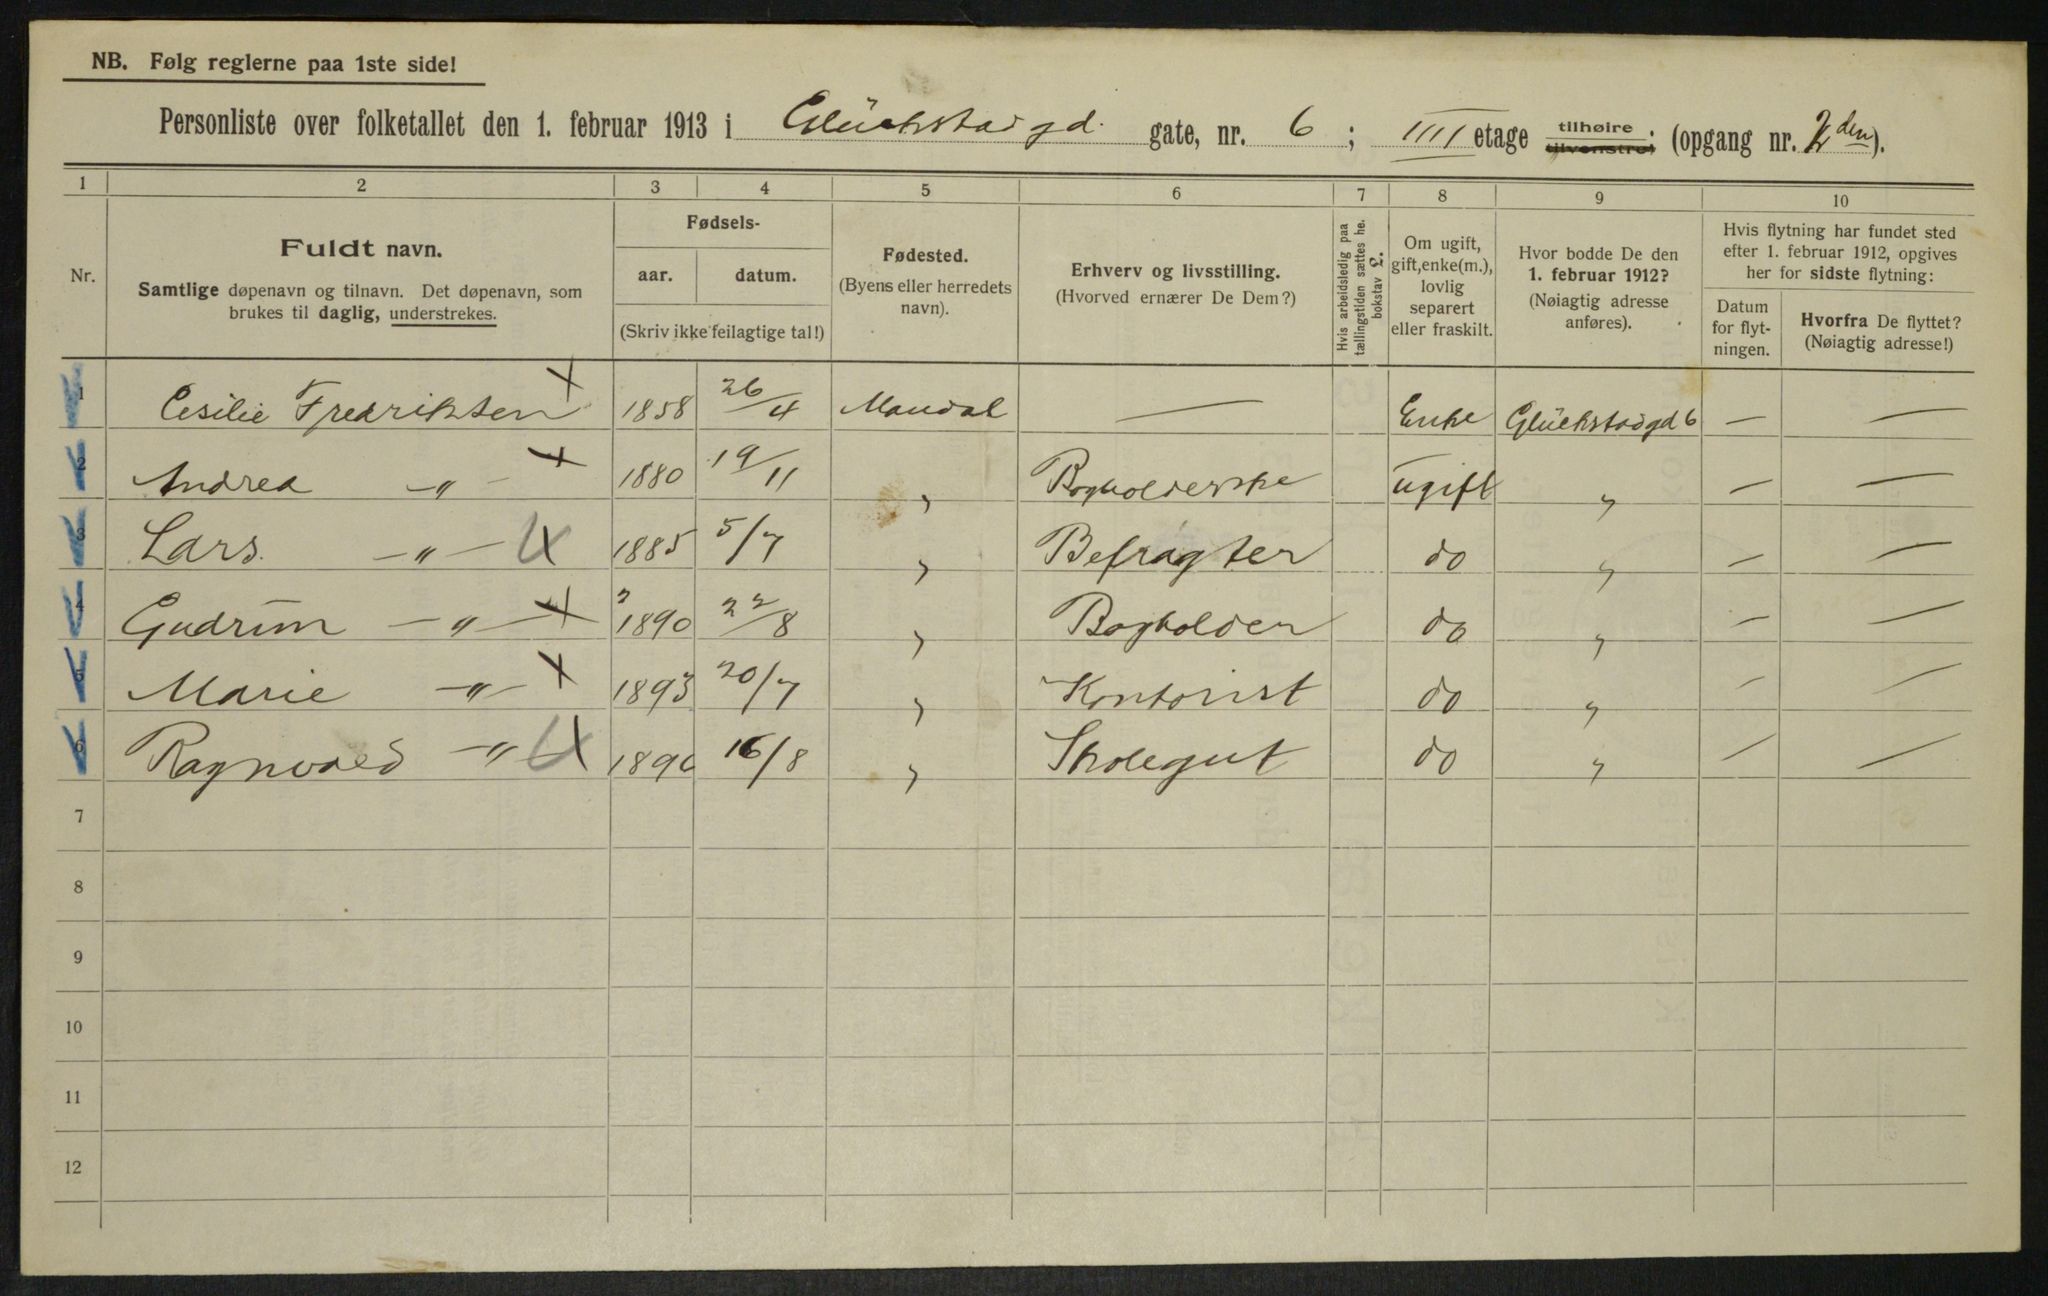 NB. Følg reglerne paa 1ste side!
Personliste over folketallet den 1. februar 1913 i Glückstadgd. gate, nr. 6 ; IIII etage tilhøire tilvenstre; (opgang nr. 2den).
1 2 3 4 5 6 7 8 9 10
Nr.
Fuldt navn.
Samtlige døpenavn og tilnavn. Det døpenavn, som
brukes til daglig, understrekes.
Fødsels-
aar. datum.
(Skriv ikke feilagtige tal!)
Fødested.
(Byens eller herredets
navn).
Erhverv og livsstilling.
(Hvorved ernærer De Dem?)
Hvis arbeidsledig paa
tællingstiden sættes he.
bokstav L.
Om ugift,
gift, enke(m.),
lovlig
separert
eller fraskilt.
Hvor bodde De den
1. februar 1912?
(Nøiagtig adresse
anføres).
Hvis flytning har fundet sted
efter 1. februar 1912, opgives
her for sidste flytning:
Datum
for flyt-
ningen.
Hvorfra De flyttet?
(Nøiagtig adresse!)
1 Cesilie Fredriksen 1858 26/4 Mandal — Enke Glückstadgd 6 — —
2 Andrea —〃— 1880 19/11 〃 Bogholderske ugift 〃 — —
3 Lars. —〃— 1885 5/7 〃 Befragter do 〃 — —
4 Gudrun —〃— 1890 22/8 〃 Bogholder do 〃 — —
5 Marie —〃— 1893 20/7 〃 Kontorist do 〃 — —
6 Ragnvald —〃— 1896 16/8 〃 Skolegut do 〃 — —
7
8
9
10
11
12